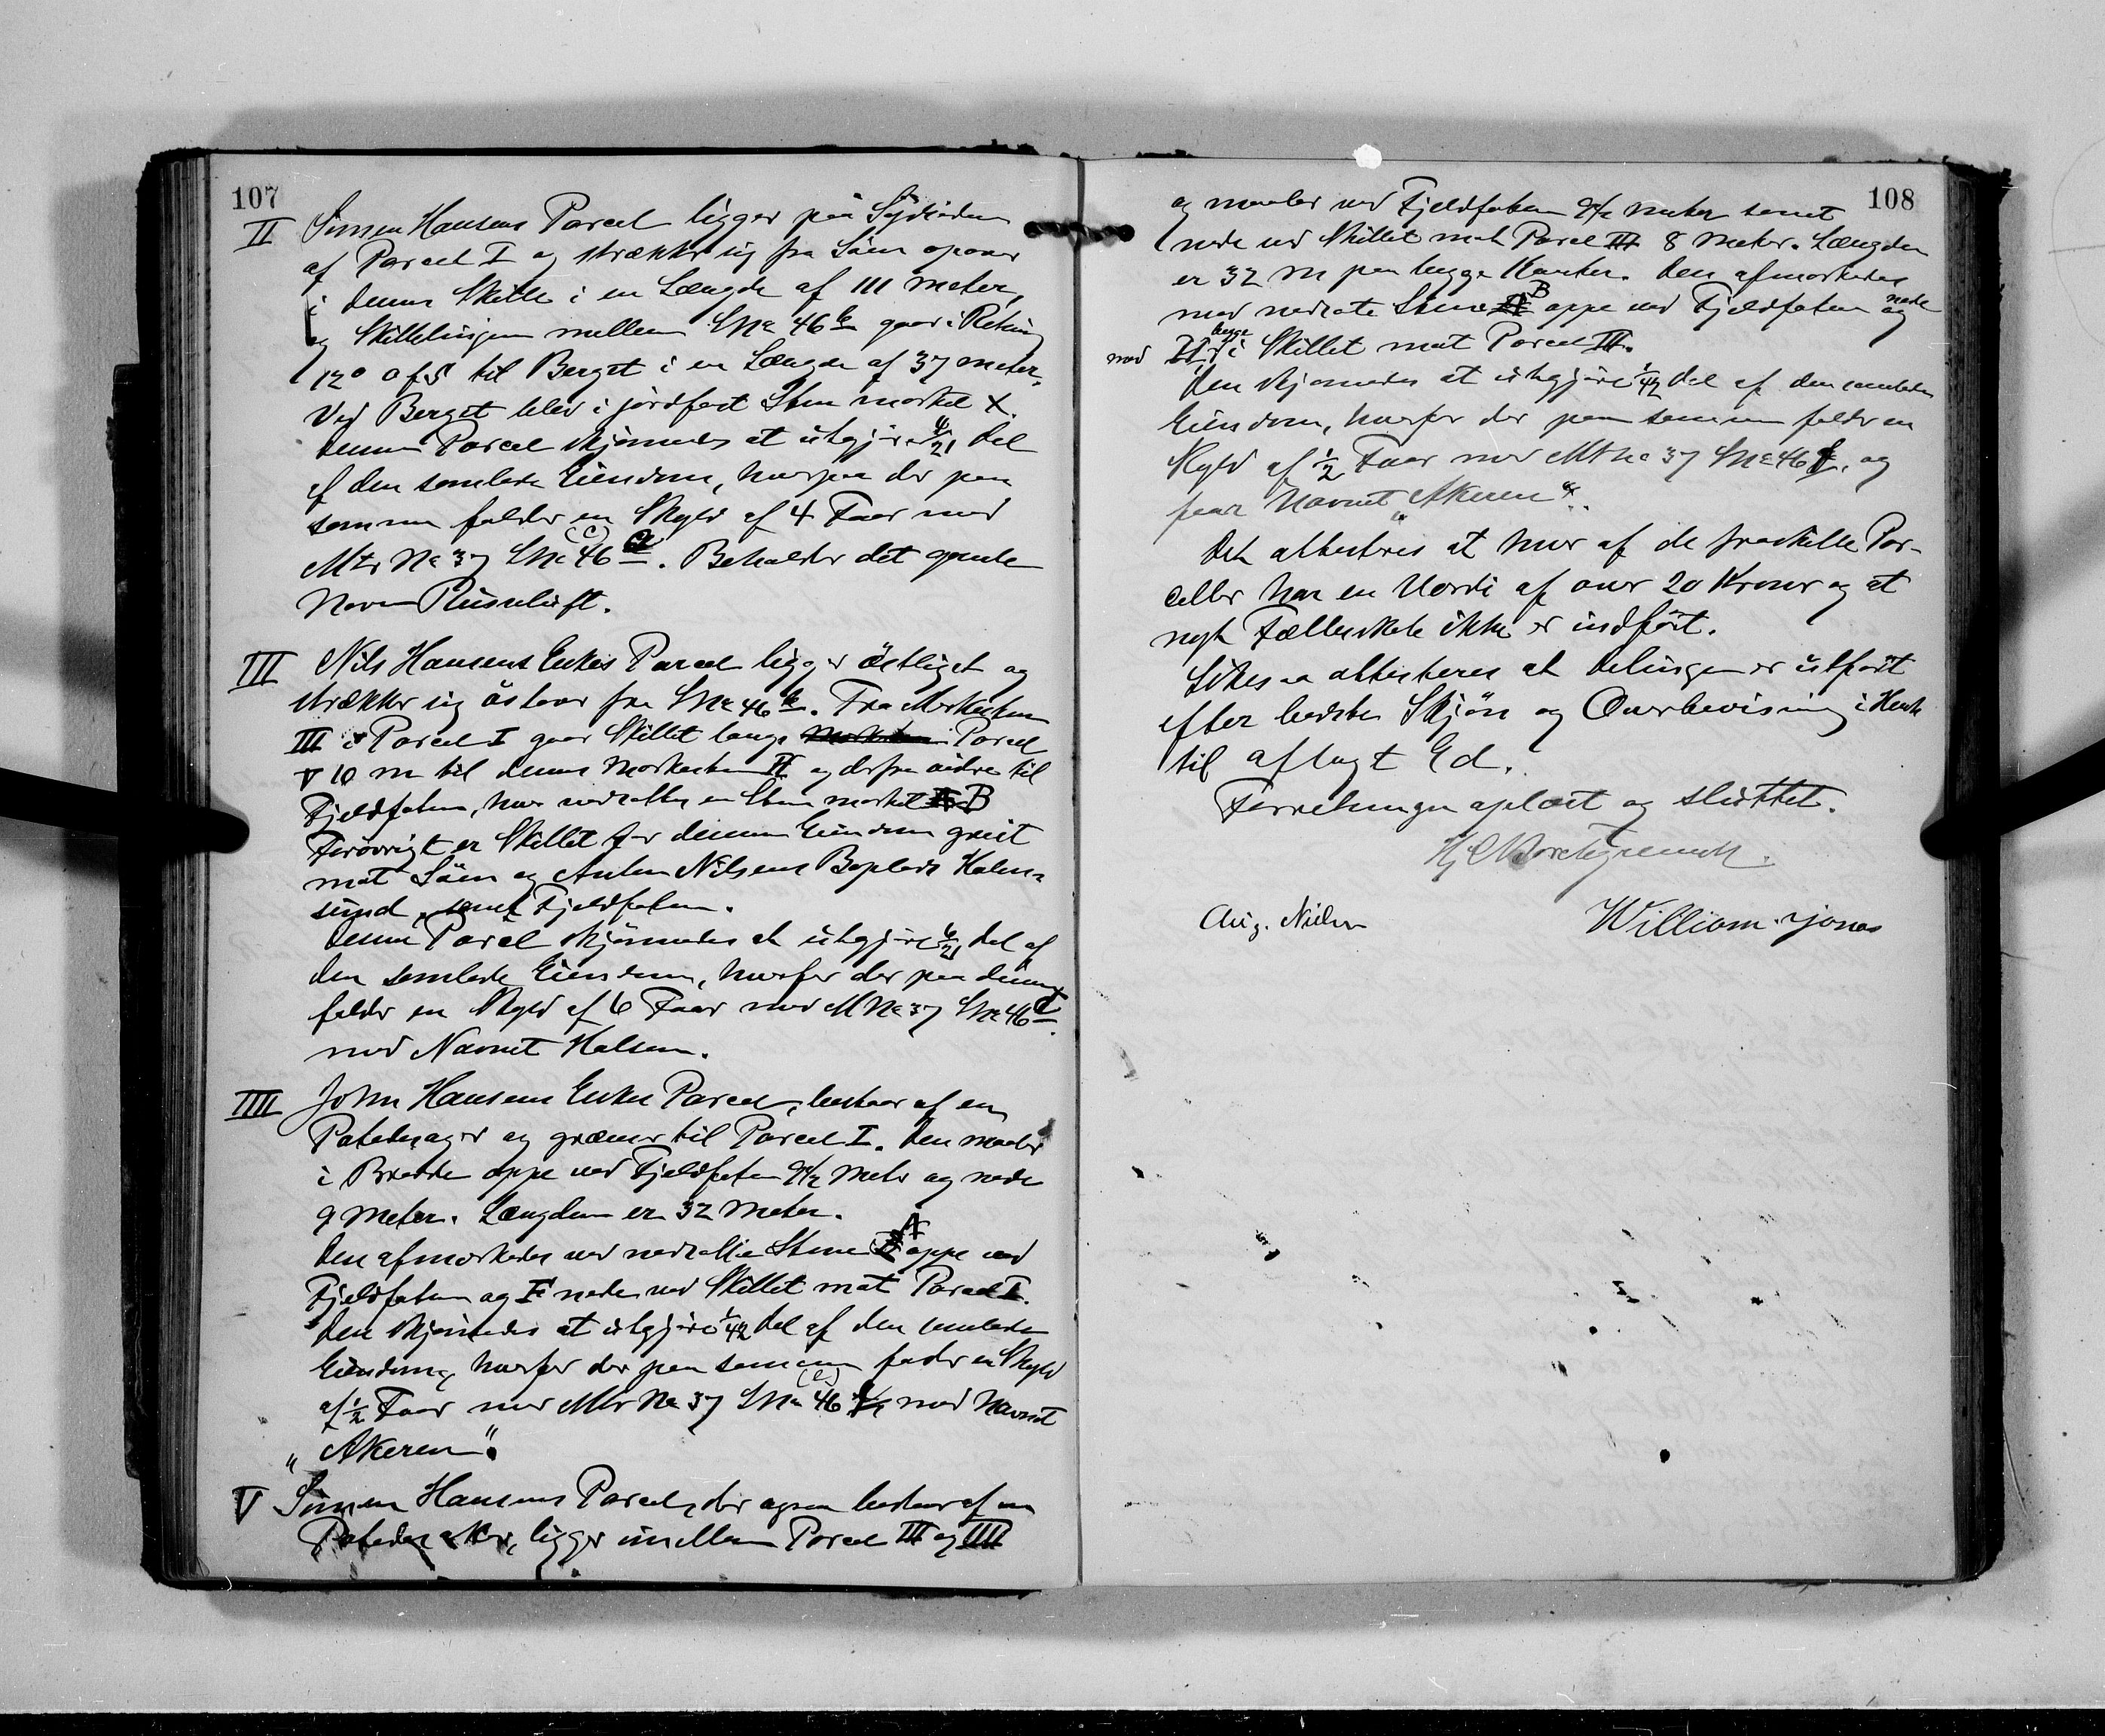 107
II Simen Hansens Parcel ligger på Sydsiden
af Parcel I og strækker sig fra Søen opover
i denne Skille i en Længde af 111 meter,
og Skillelinjen mellem LNo 46 b gaar i Retning
12° O f S til Berget i en Længde af 37 meter.
Ved Berget blev i jordfast Sten merket X.
Denne Parcel skjønnedes at utgjøre 4/21 Del
af den samlede Eiendom, hvorpaa der paa
samme falder en Skyld af 4 Færer med
Mtr No 37 LNo 46 (c). Beholder det gamle
Navn
III Nils Hansens Enkes Parcel ligger østligst og
strækker sig østover fra LNo 46 b. Fra Merkesten
III i Parcel I gaar Skillet langs Parcel
V 10 m til dennes Merkesten II og derfra videre til
Fjeldfoten, hvor nedsattes en Sten merket B
Forøvrigt er Skillet for denne Eiendom greit
mot Søen og Anton Nilsens Boplads Holm-
sund, samt Fjeldfoten.
Denne Parcel skjønnedes at utgjøre 6/21 Del af
den samlede Eiendom, hvorfor der paa denne
falder en Skyld af 6 Færer med MNo 37 LNo 46 d
med Navnet Holsen.
IIII John Hansens Enkes Parcel, bestaar af en
Potetesager og grænser til Parcel I. Den maaler
i Bredde oppe ved Fjeldfoten 9 1/2 Meter og nede
9 Meter. Længden er 32 Meter.
Den afmerkedes ved nedsatte Stene A oppe ved
Fjeldfoten og I nede ved Skillet mot Parcel I.
Den skjønnedes at utgjøre 1/42 Del af den samlede
Eiendom, hvorfor der paa samme falder en Skyld
af 1/2 Fær med Mtr No 37 LNo 46 (e) med Navnet
„Akeren".
V Simen Hansens Parcel, der ogsaa bestaar af en
Potetesaker, ligger imellem Parcel III og IIII
108
og maaler ved Fjeldfoten 9 1/2 meter samt
nede ved Skillet mot Parcel III 8 Meter. Længden
er 32 m paa begge Kanter. Den afmerkedes
med nedsatte Stene B oppe ved Fjeldfoten og nede
med II, begge i Skillet mot Parcel III.
Den skjønnedes at utgjøre 1/42 Del af den samlede
Eiendom, hvorfor der paa samme falder en
Skyld af 1/2 Fær med Mt No 37 LNo 46 f, og
faar Navnet „Akeren".
Det attesteres at hver af de fraskilte Par-
celler har en Værdi af over 20 Kroner og at
nyt Fællesskab ikke er indført.
Likesaa attesteres at Delingen er utført
efter bedste Skjøn og Overbevisning i Henh
til aflagt Ed.
Forretningen oplæst og sluttet.
Hj Borchgrevink.
Aug. Nielsen William Jonas